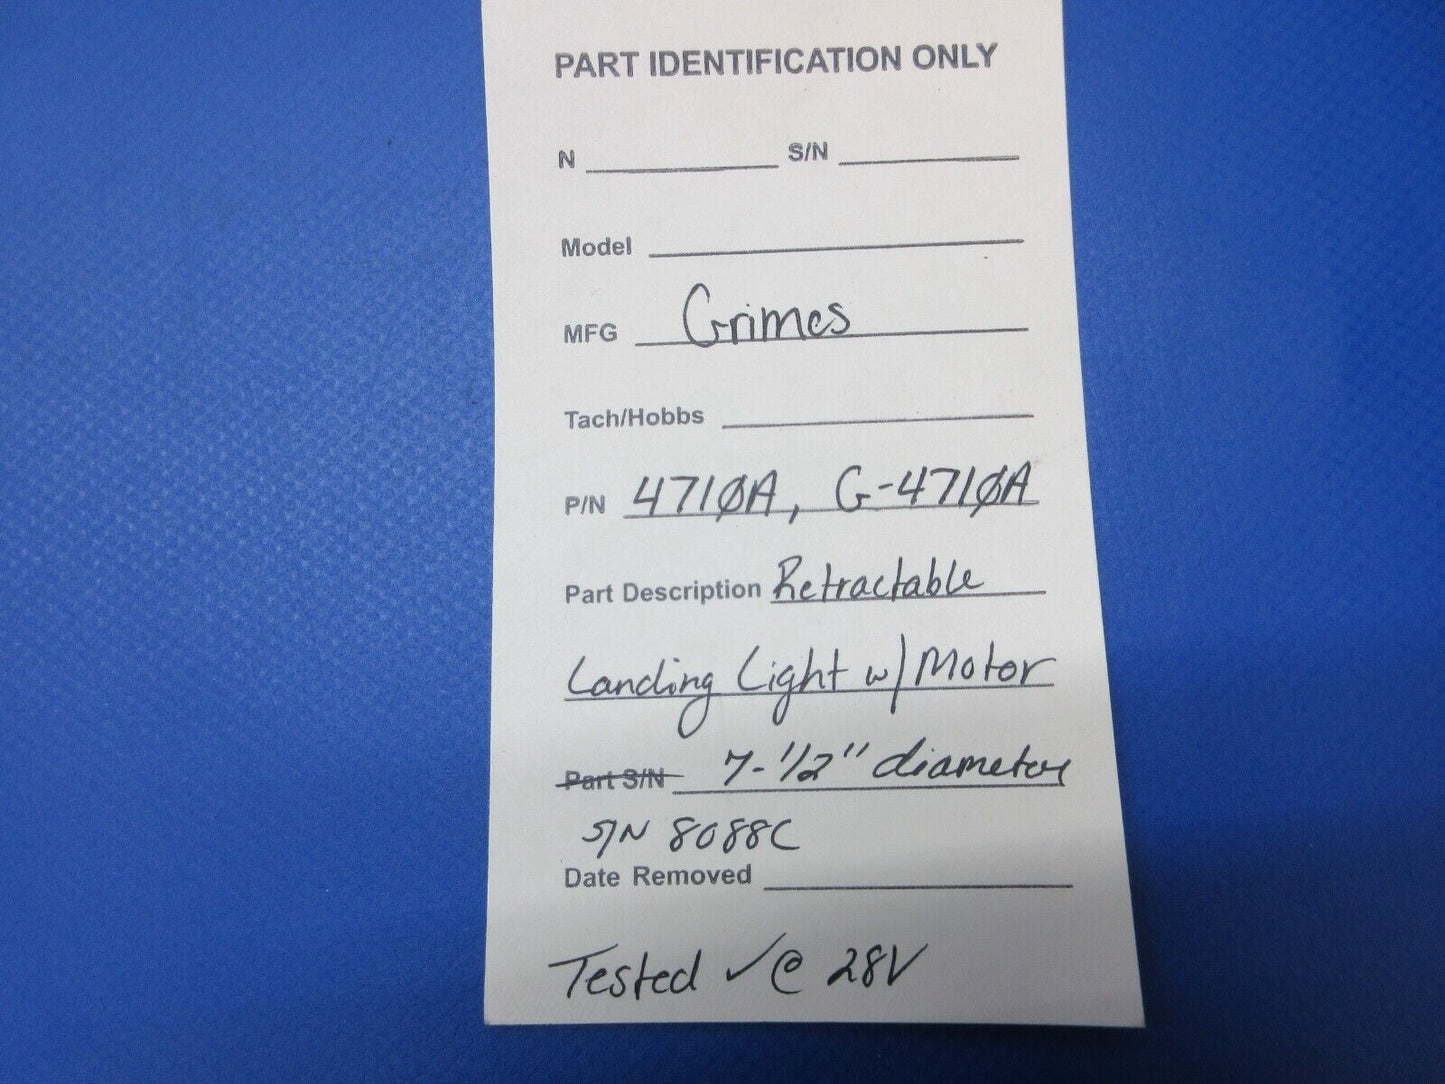 PART IDENTIFICATION ONLY
N S/N
Model
MFG Grimes
Tach/Hobbs
P/N 4710A, G-4710A
Part Description Retractable
Landing Light w/ Motor
Part S/N 7-1/2" diameter
S/N 8088C
Date Removed
Tested ✓@ 28V